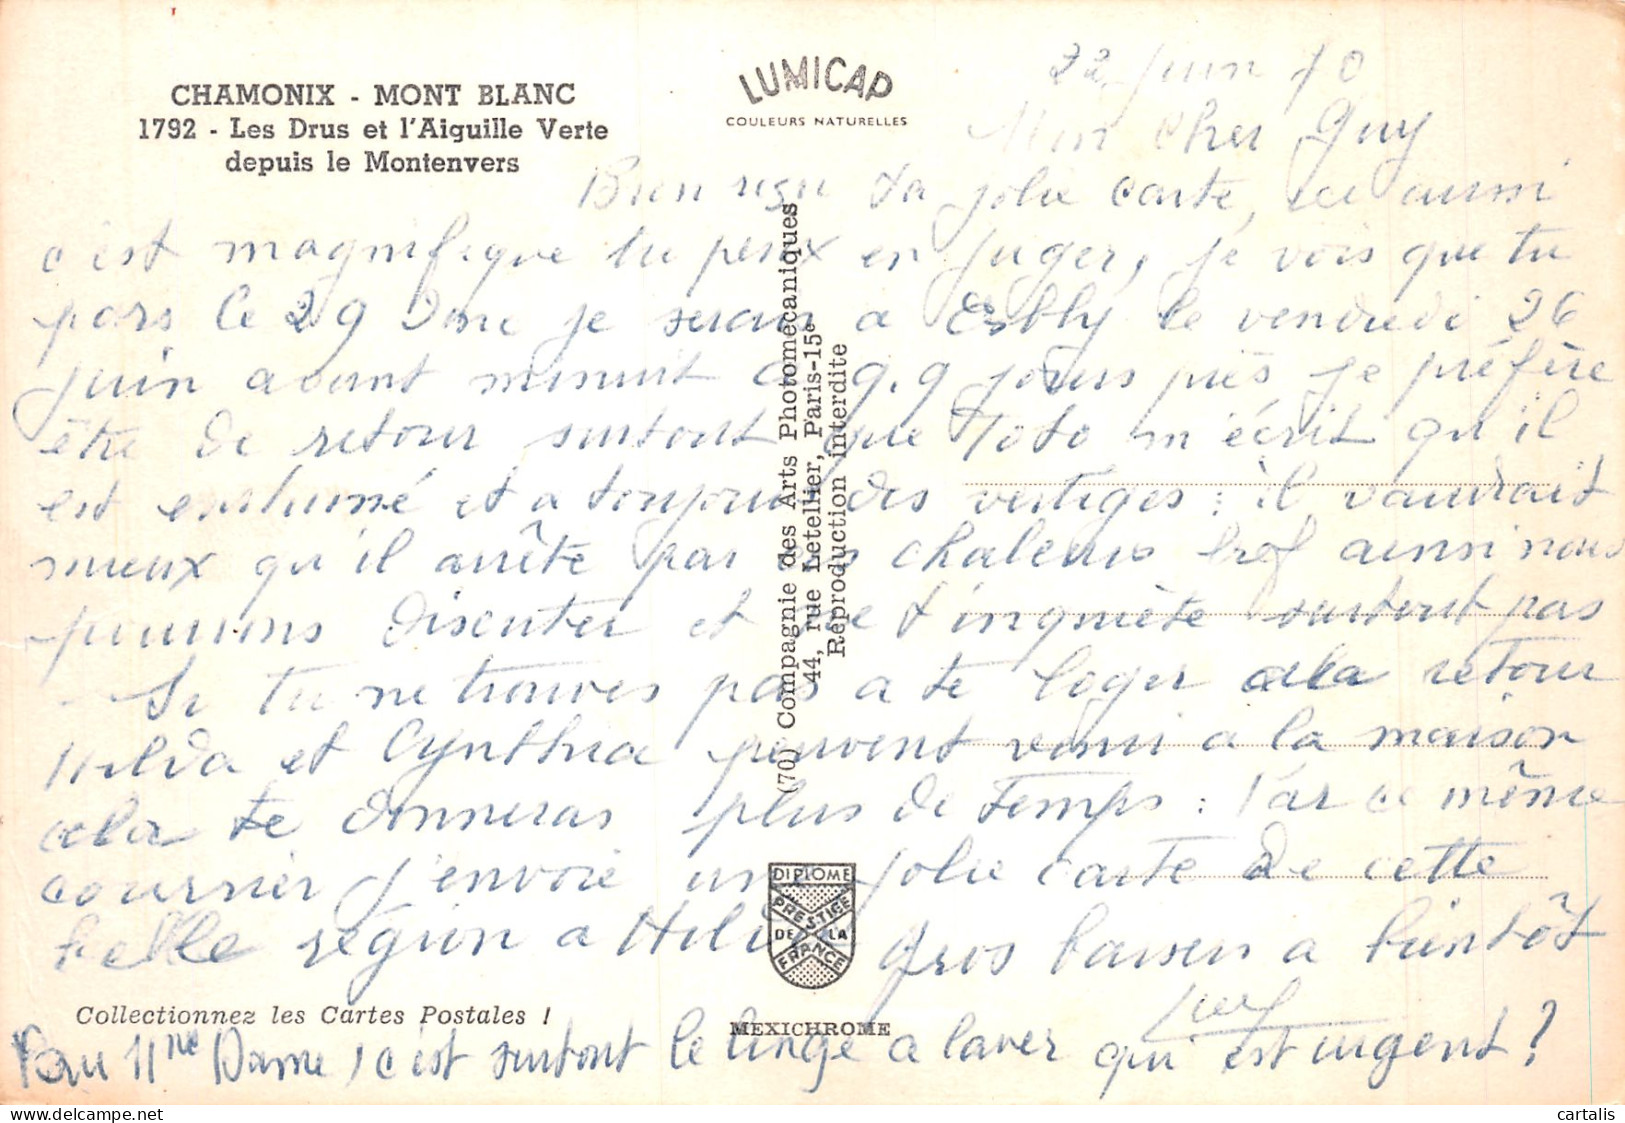 CHAMONIX - MONT BLANC
1792 - Les Drus et l'Aiguille Verte
depuis le Montenvers
LUMICAP
COULEURS NATURELLES
22 Juin 70
Mon cher Guy
Bien reçu ta jolie carte, ici aussi
c'est magnifique tu peux en juger, je vois que tu
pars le 29 Donc je serai a Esbly le vendredi 26
juin avant minuit a 9.9 jours près je préfère
être de retour surtout que Toto m'écrit qu'il
est enrhumé et a toujours des vertiges : il vaudrait
mieux qu'il arrête par ses chaleurs bref ainsi nous
pourrons discuter et ne t'inquiète surtout pas
Si tu ne trouves pas a te loger a la retour
Hilda et Cynthia peuvent venir a la maison
cela te donneras plus de temps : Par ce même
courrier j'envoie une jolie carte de cette
belle région a Hilda Gros baisers a bientôt
Pour 11ne Dame, c'est surtout le linge a laver qui est urgent ?
(70) Compagnie des Arts Photomécaniques
44, rue Letellier, Paris-15e
Reproduction interdite
DIPLOME
PRESTIGE
DE LA
FRANCE
Collectionnez les Cartes Postales !
MEXICHROME
cartalis.com